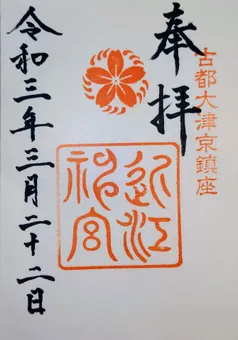 奉拝
古都大津京鎮座
近江神宮
令和三年三月二十二日